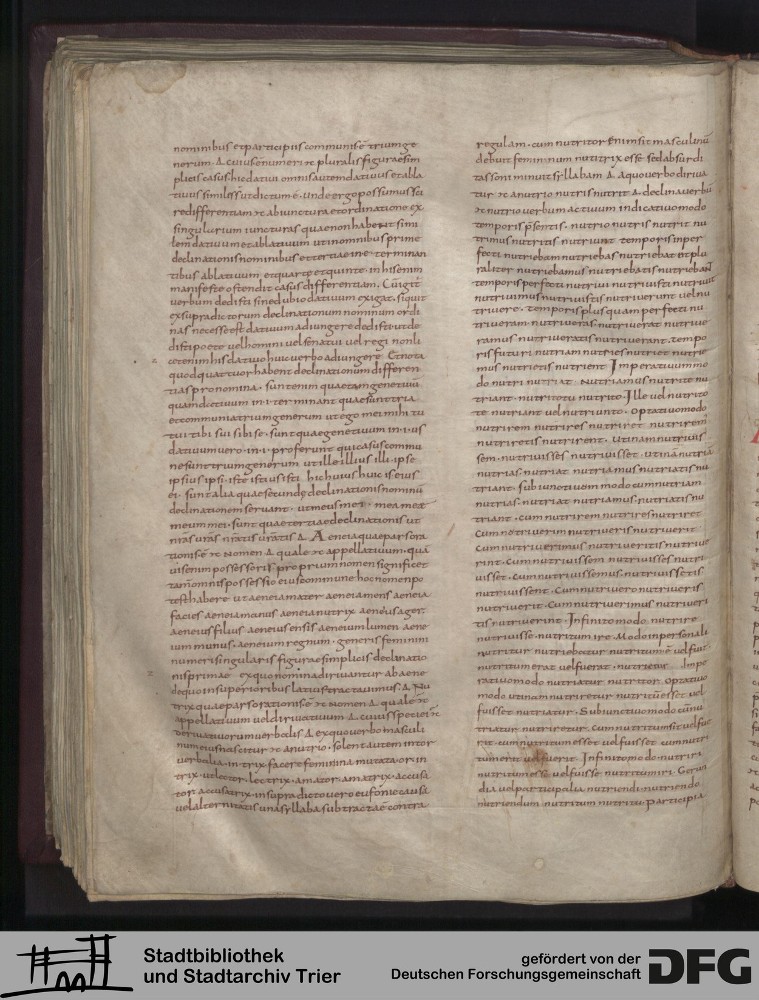 nominibus et participiis communis ē trium ge
nerum. Δ. cuius ē numeri σ pluralis figurae sim
plicis casus hic dativi omnis autem dativus et abla
tivus similis sūt dictum ē. unde ergo possumus sci
re differentiam σ abiunctura et ordinatione ex
singularium iuncturas quae non habent simi
lem dativum et ablativum ut in nominibus prime
declinationis nominibus et tertiae in e terminan
tibus ablativum et quarte et quinte in his enim
manifeste ostendit casus differentiam. Cui git
verbum dedisti sine dubio dativum exigat. si quis
ex supradictorum declinationum nominum ordi
nas necesse est dativum adiungere dedisti ut de
disti poete vel homini vel senatui vel regi non li
cet enim his dativo huic verbo adiungere. Et nota
quod quattuor habent declinationum differen
tias pronomina. sunt enim quae tam genetivū
quam dativum in .i. terminant quae sunt tria
et communia trium generum ut ego mei mihi tu
tui tibi sui sibi se. sunt quae genetivum in .i.us
dativum vero .in .i. proferunt qui casus commu
nes sunt trium generum ut ille illius illi. ipse
ipsius ipsi. iste istius isti hic huius huic is eius
ei. sunt alia quae secundę declinationis nominū
declinationem servant. ut meus mei. mea meę
meum mei. sunt quae tertiae declinationis ut
nras nratis vras vratis Δ. Aeneia quae pars ora
tionis ē σ Nomen Δ quale σ appellativum. quā
vis enim possessoris proprium nomen significet
tam̄ omnis possessio eius commune hoc nomen po
test habere ut aeneia mater aeneia mens aeneia
facies aeneia manus aeneia nutrix aeneius ager.
aeneius filius aeneius ensis aeneium lumen aene
ium munus. aeneium regnum. generis feminini
numeri singularis figurae simplicis declinatio
nis primae ex quo nomina dirivantur ab aenea
de quo in superioribus latius tractavimus. Δ. Nu
trix quae pars orationis ē σ Nomen Δ quale σ
appellativum vel dirivativum Δ. cuius speciei σ
derivativorum verbalis Δ ex quo verbo masculi
num eius nascitur σ a nutrio. solent autem in tor
verbalia. in trix facere feminina mutata. or. in
trix. ut lector. lectrix. amator. amatrix. accusa
tor. accusatrix. in supradicto vero eufoniae causa
vel alternitatis una syllaba subtractaē contra
regulam. cum nutritor enim sit masculinū
debuit femininum nutitrix esse sed absurdi
tas soni minuit syllabam Δ. A quo verbo diriva
tur σ a nutrio nutris nutrit Δ. declina verbū
σ nutrio verbum activum indicativo modo
temporis p̄sentis. nutrio nutris nutrit nu
trimus nutritis nutriunt temporis inper
fecti nutriebam nutriebas nutriebat et plu
raliter nutriebamus nutriebatis nutriebant
temporis perfecti nutrivi nutrivisti nutrivit
nutrivimus nutrivistis nutriverunt vel nu
trivere. temporis plus quam perfecti nu
triveram nutriveras nutriverat nutrive
ramus nutriveratis nutriverant. tempo
ris futuri nutriam nutries nutriet nutrie
mus nutrietis nutrient Imperativo mo
do nutri nutriat. Nutriamus nutrite nu
triant. nutrito tu nutrito. Ille vel nutrito
te nutriant vel nutriunto. optativo modo
nutrirem nutrires nutriret nutriremꝰ
nutriretis nutrirent. utinam nutrivis
sem. nutrivisses nutrivisset. utinā nutriā
nutrias. nutriat nutriamus nutriatis nu
triant. subiunctivo modo cum nutriam
nutrias. nutriat nutriamus. nutriatis nu
triant. cum nutrirem nutrires nutriret
Cum nutriverim nutriveris nutriverit
Cum nutriverimus nutriveritis nutrive
rint. Cum nutrivissem nutrivisses nutri
visset. Cum nutrivissemus. nutrivissetis
nutrivissent. Cum nutrivero nutriveris
nutriverit. Cum nutriverimus nutriveri
tis nutriverint. Infinito modo. nutrire
nutrivisse. nutritum ire. Modo inpersonali
nutritur nutriebatur nutritum ē vel fuit
nutritum erat vel fuerat. nutrietur. Impe
rativo modo nutriatur nutritor. optativo
modo utinam nutriretur nutritū esset vel
fuisset nutriatur. Subiunctivo modo cū nu
triatur nutriretur. Cum nutritum sit vel fue
rit. cum nutritum esset vel fuisset cum nutri
tum erit vel fuerit. Infinito modo nutriri
nutritum esse vel fuisse nutritum iri. Gerun
dia vel participalia nutriendi. nutriendo
nutriendum nutritum nutritu. Participia
Stadtbibliothek
und Stadtarchiv Trier
gefördert von der
Deutschen Forschungsgemeinschaft
DFG